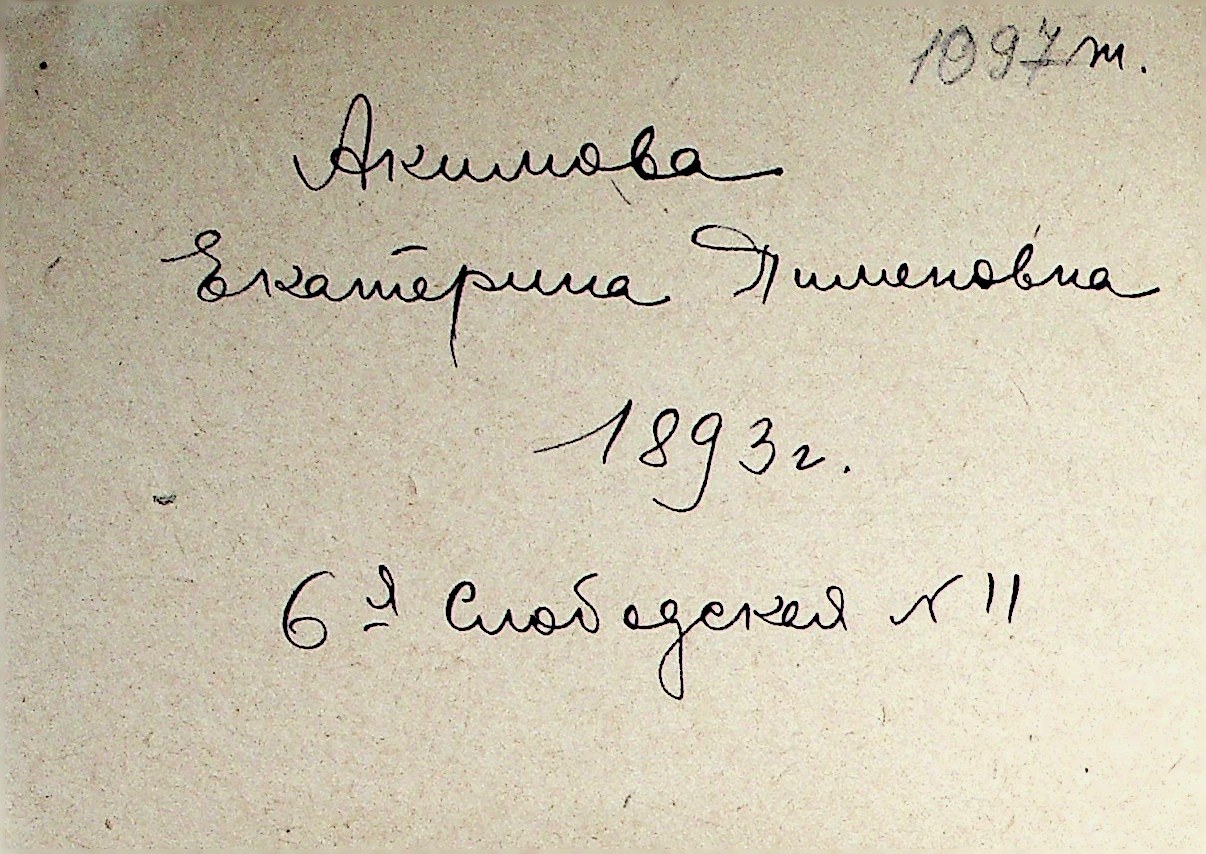 1097т.
Акимова
Екатерина Пименовна
1893г.
6я Слободская № 11